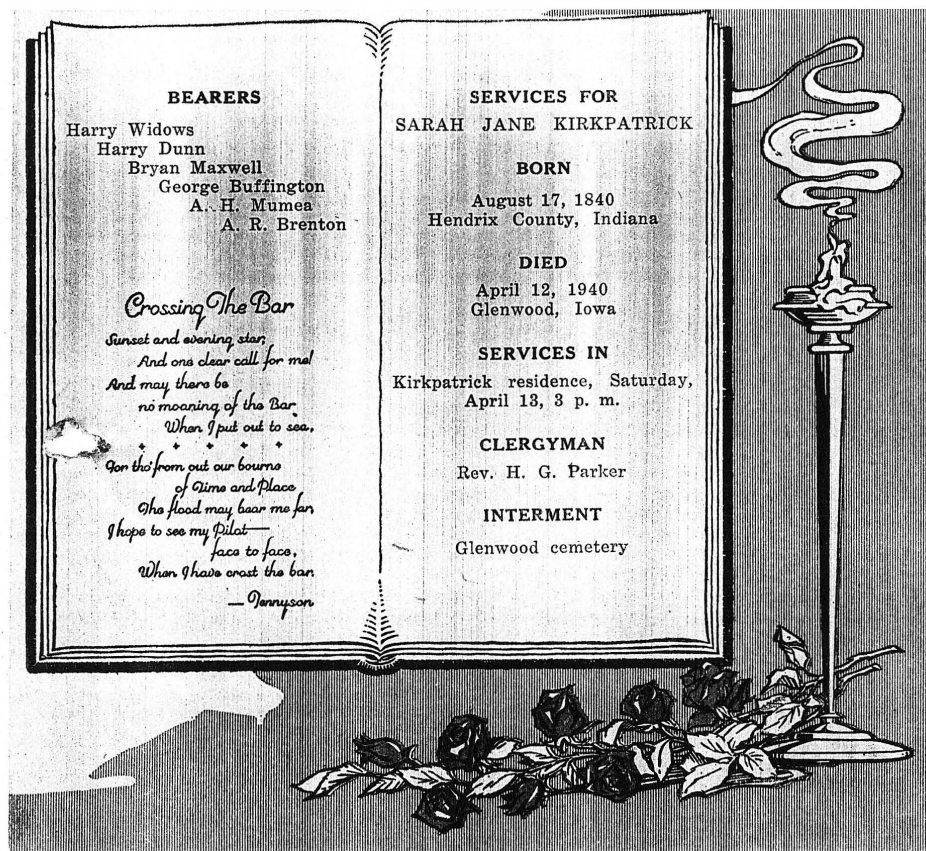 BEARERS
Harry Widows
Harry Dunn
Bryan Maxwell
George Buffington
A. H. Mumea
A. R. Brenton
Crossing The Bar
Sunset and evening star,
And one clear call for me!
And may there be
no moaning of the Bar
When I put out to sea,
For tho' from out our bourne
of Time and Place
The flood may bear me far,
I hope to see my Pilot—
face to face,
When I have crost the bar.
— Tennyson
SERVICES FOR
SARAH JANE KIRKPATRICK
BORN
August 17, 1840
Hendrix County, Indiana
DIED
April 12, 1940
Glenwood, Iowa
SERVICES IN
Kirkpatrick residence, Saturday,
April 13, 3 p. m.
CLERGYMAN
Rev. H. G. Parker
INTERMENT
Glenwood cemetery